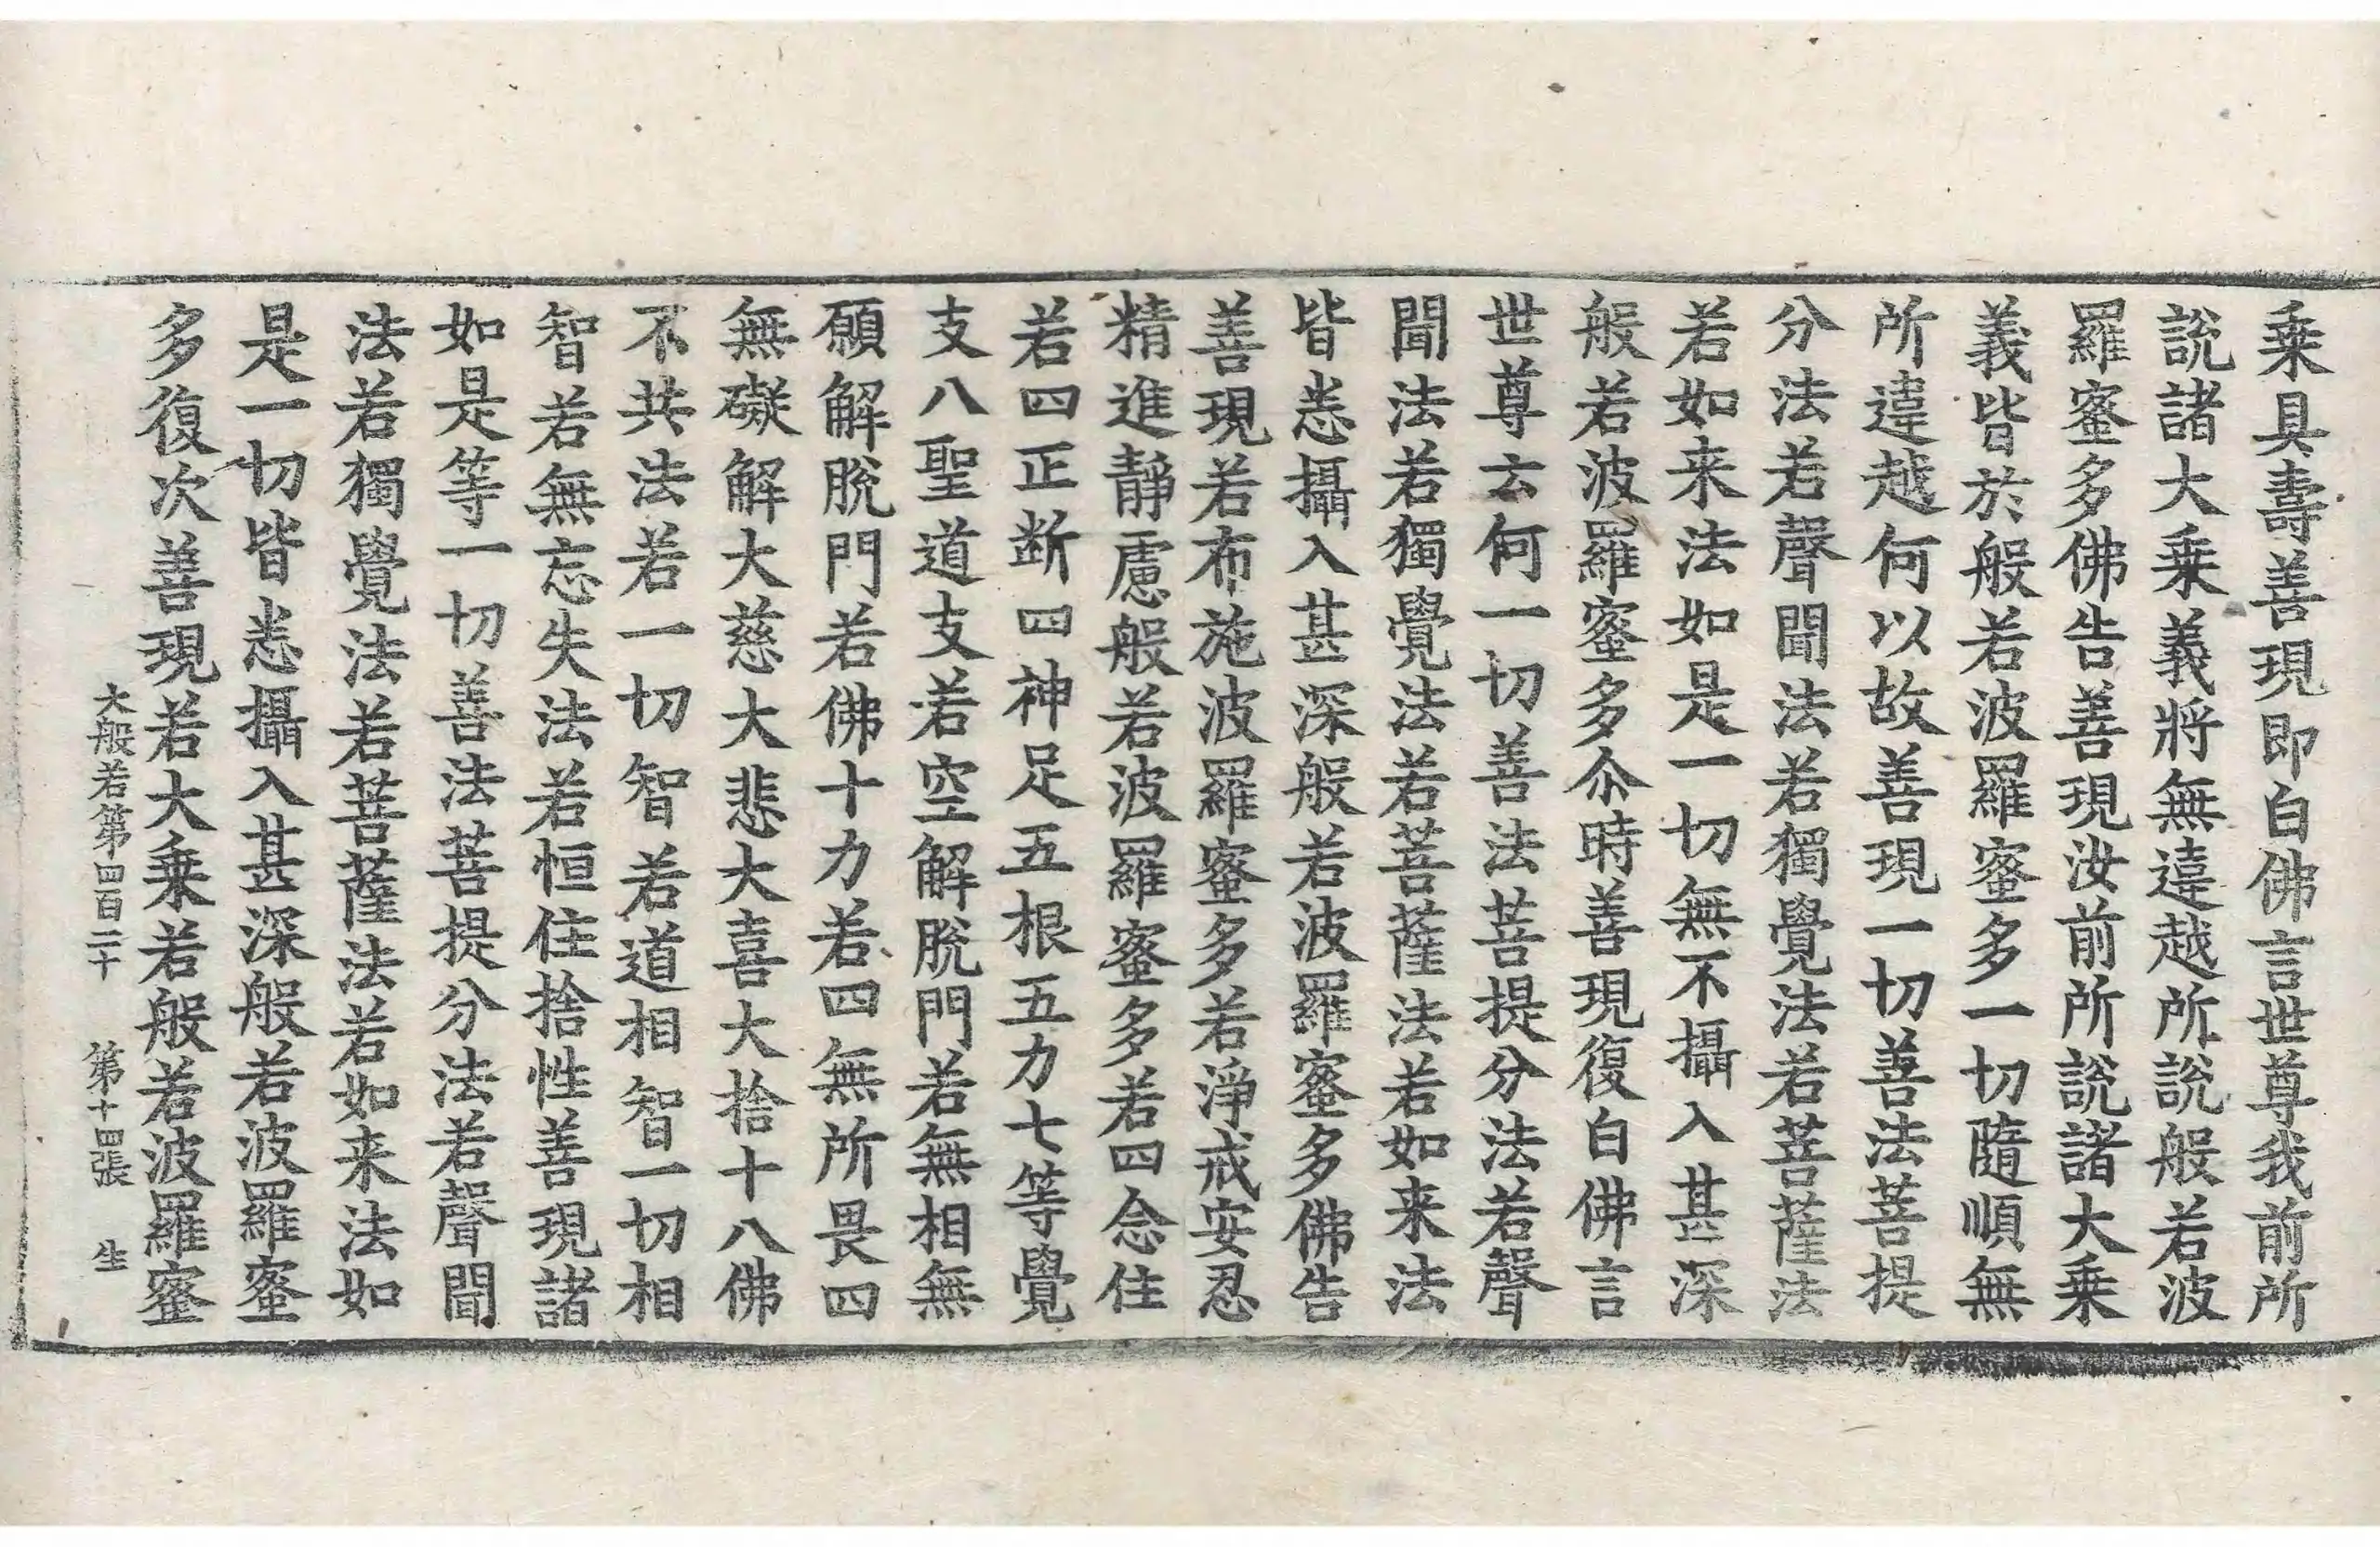 乗具壽善現即白佛言世尊我前所
說諸大乗義將無違越所說般若波
羅蜜多佛告善現汝前所說諸大乗
義皆於般若波羅蜜多一切隨順無
所違越何以故善現一切善法菩提
分法若聲聞法若獨覺法若菩薩法
若如来法如是一切無不攝入甚深
般若波羅蜜多尒時善現復白佛言
世尊云何一切善法菩提分法若聲
聞法若獨覺法若菩薩法若如来法
皆悉攝入甚深般若波羅蜜多佛告
善現若布施波羅蜜多若淨戒安忍
精進靜慮般若波羅蜜多若四念住
若四正断四神足五根五力七等覺
支八聖道支若空解脫門若無相無
願解脫門若佛十力若四無所畏四
無礙解大慈大悲大喜大捨十八佛
不共法若一切智若道相智一切相
智若無忘失法若恒住捨性善現諸
如是等一切善法菩提分法若聲聞
法若獨覺法若菩薩法若如来法如
是一切皆悉攝入甚深般若波羅蜜
多復次善現若大乗若般若波羅蜜
大般若第四百二十 第十四張 生